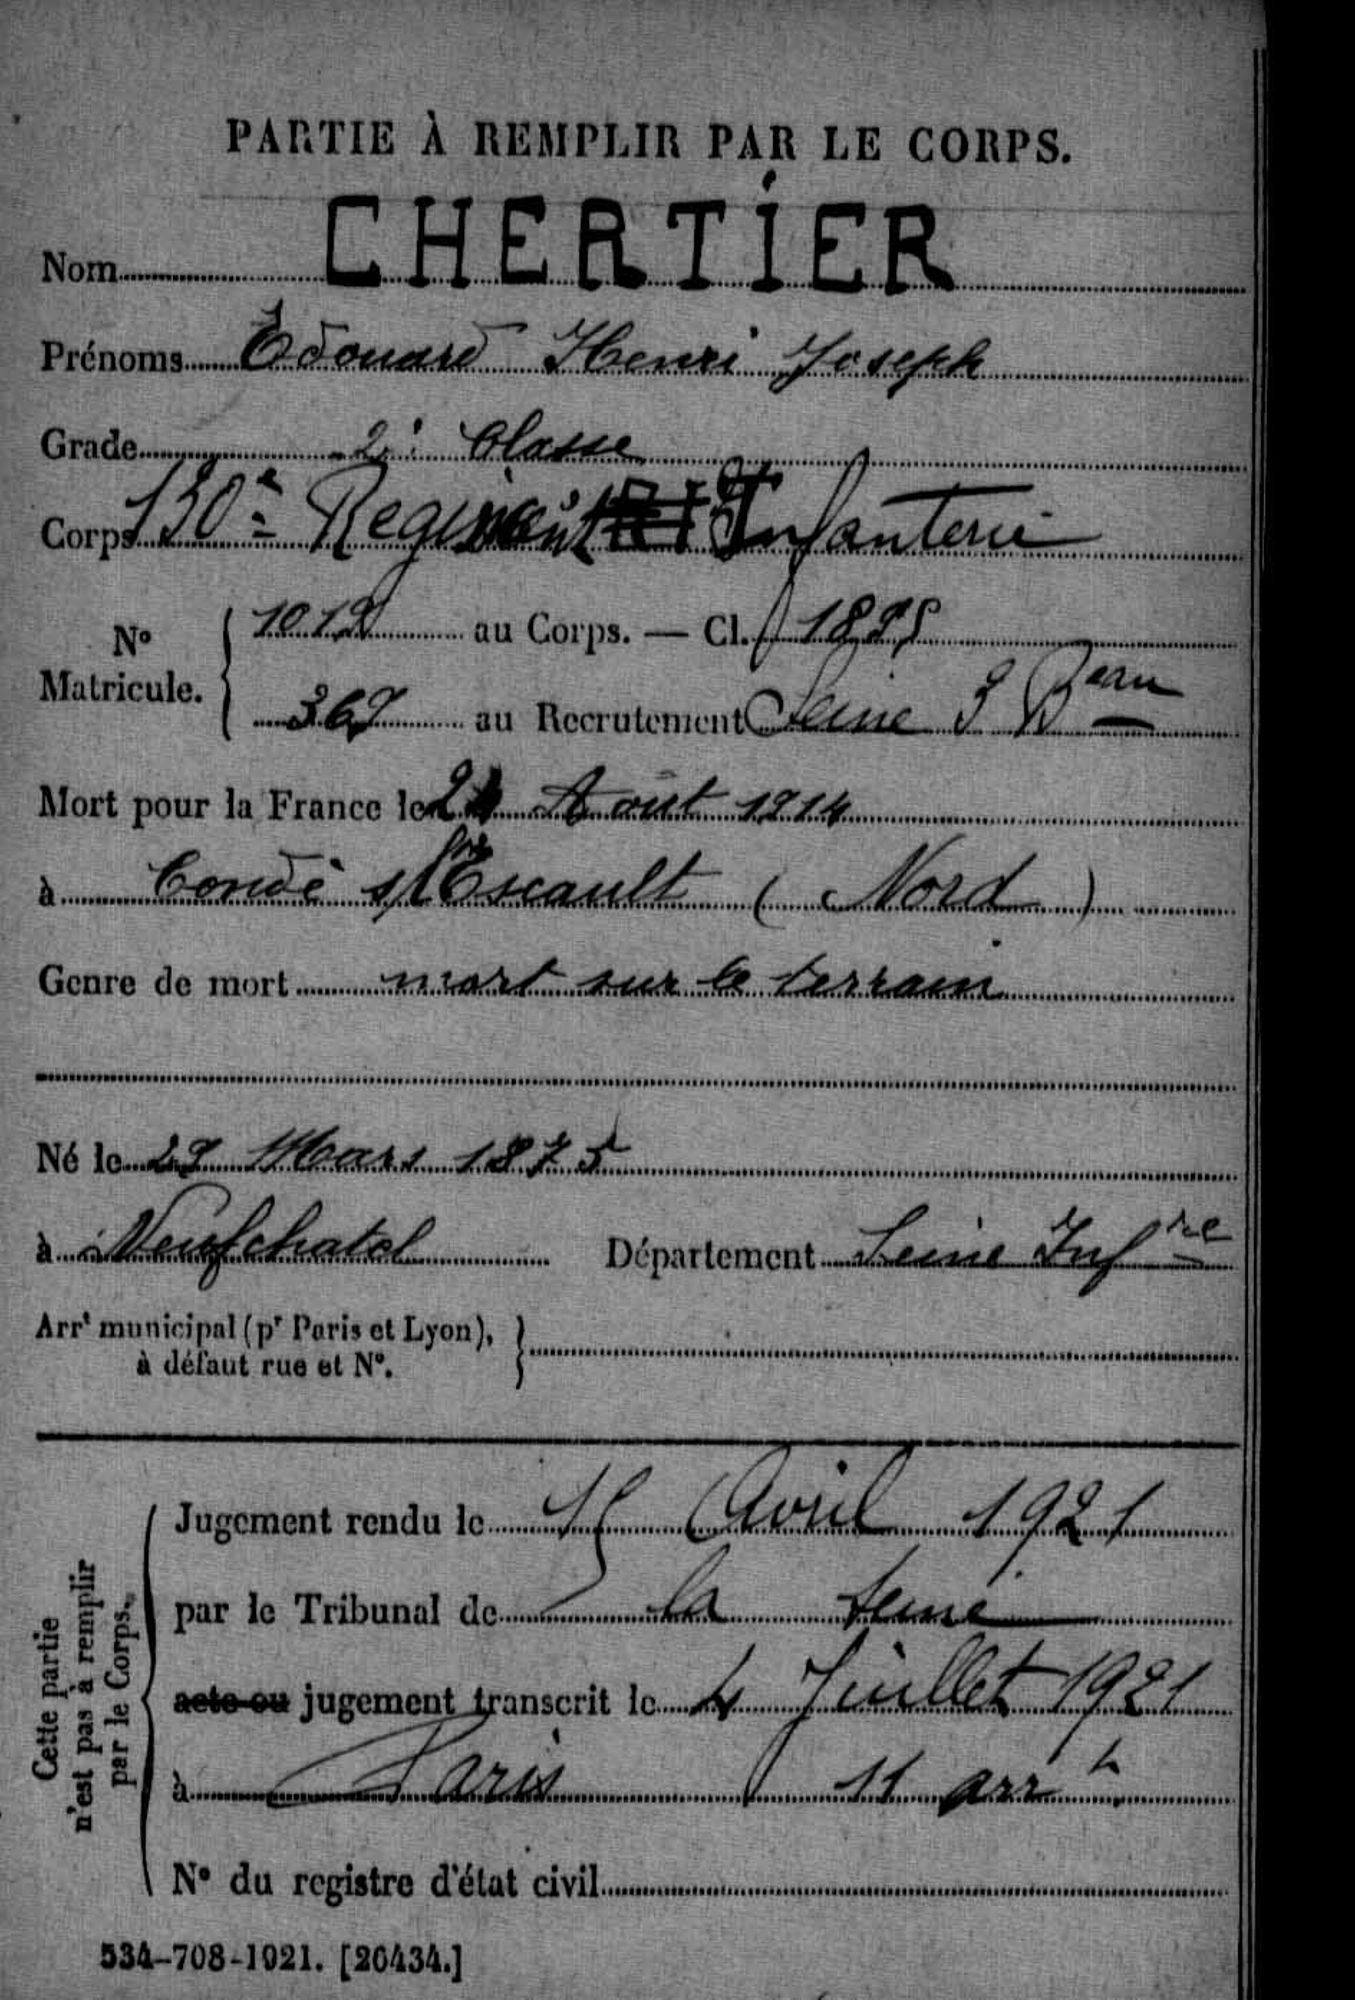 PARTIE À REMPLIR PAR LE CORPS.
Nom CHERTIER
Prénoms Edouard Henri Joseph
Grade 2e Classe
Corps 130e Regiment Infanterie
No Matricule. 1012 au Corps. — Cl. 1895
367 au Recrutement Seine 3 Beau
Mort pour la France le Août 1914
à Condé s/ Escault (Nord)
Genre de mort mort sur le terrain
Né le 29 Mars 1875
à Neufchatel Département Seine Infre
Arrt municipal (pr Paris et Lyon),
à défaut rue et No.
Cette partie
n'est pas à remplir
par le Corps.
Jugement rendu le 15 Avril 1921
par le Tribunal de la Seine
acte ou jugement transcrit le 4 Juillet 1921
à Paris 11 arrt
No du registre d'état civil
534-708-1921. [26434.]